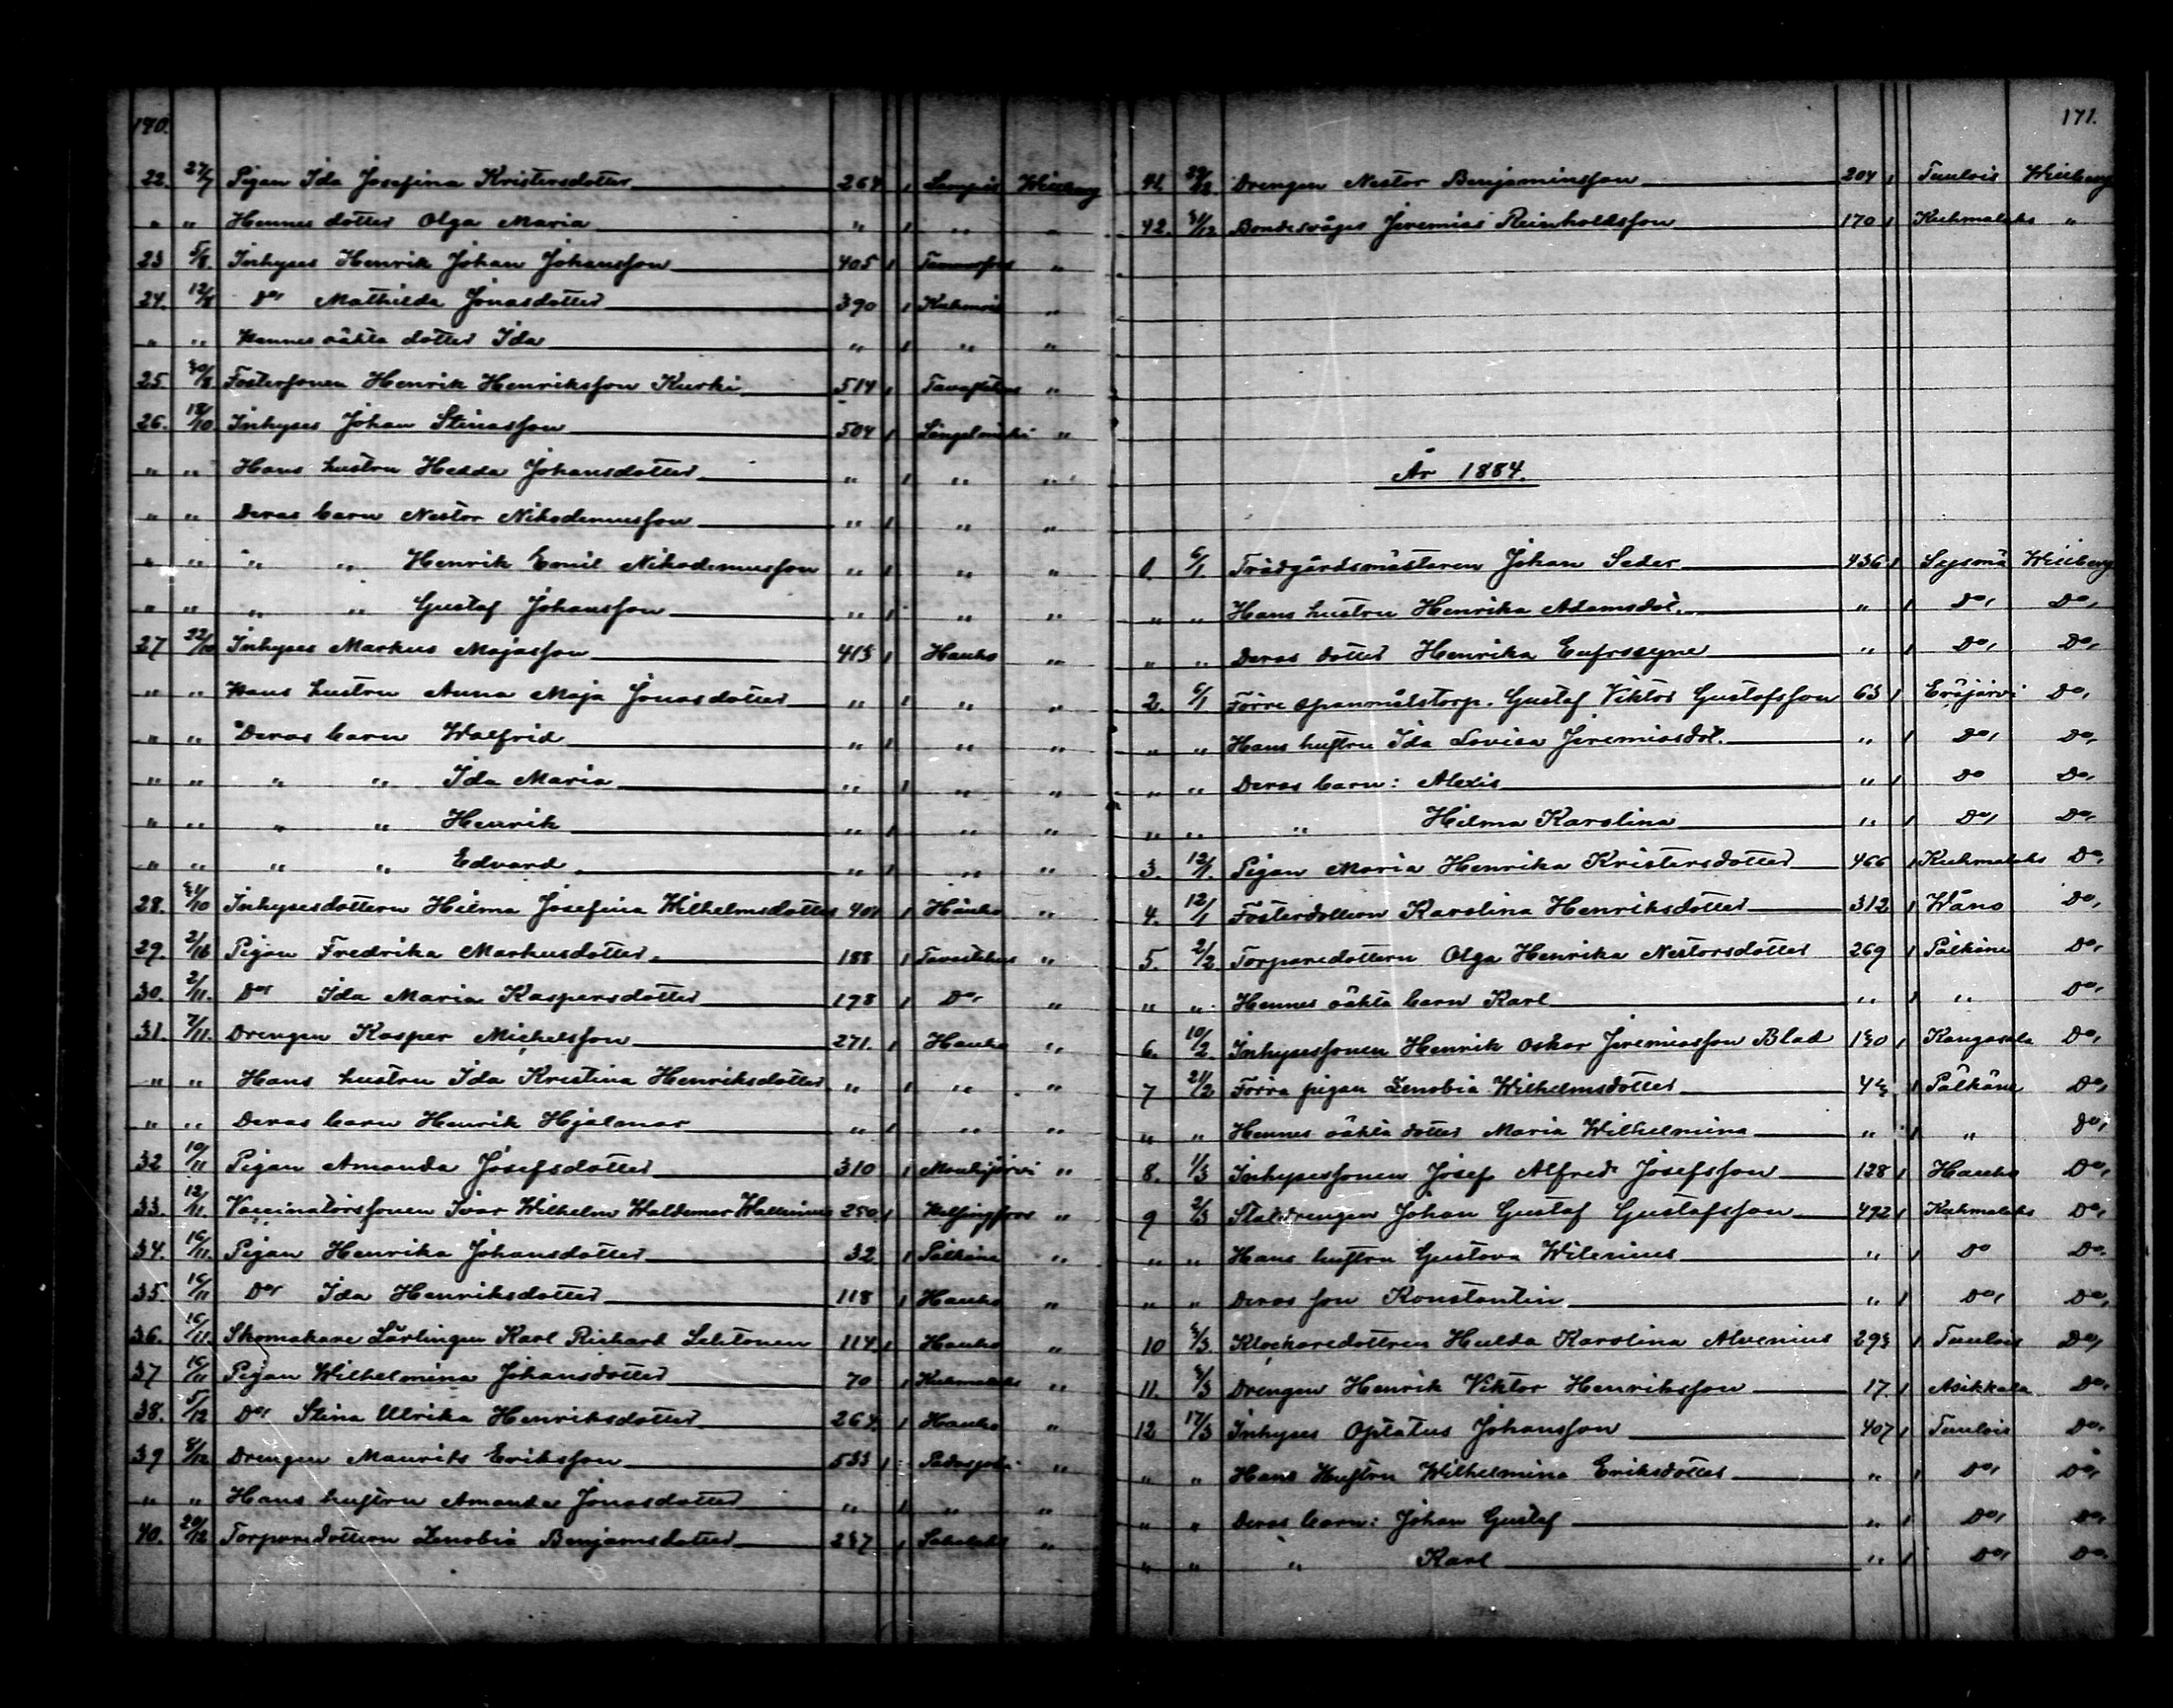 170.
22. 27/7 Pigan Ida Josefina Kristersdotter 264 1 Lampis Weinberg
" " Hennes dotter Olga Maria " 1 " "
23 5/8. Inhyses Henrik Johan Johansson 405 1 Tammerfors "
24. 12/8 Do, Mathilda Jonasdotter 390 1 "
" " Hennes oäkta dotter Ida " 1 " "
25 30/8 Fostersonen Henrik Henriksson Kurki 514 1 Tavastehus "
26. 18/10 Inhyses Johan Stinasson 504 1 Längelmäki "
" " Hans hustru Hedda Johansdotter " 1 " "
" " Deras barn Nestor Nikodemusson " 1 " "
" " " " Henrik Emil Nikodemusson " 1 " "
" " " " Gustaf Johansson " 1 " "
27 22/10 Inhyses Markus Majasson 415 1 Hauho "
" " Hans hustru Anna Maja Jonasdotter " 1 " "
" " Deras barn Walfrid " 1 " "
" " " " Ida Maria " 1 " "
" " " " Henrik " 1 " "
" " " " Edvard " 1 " "
28. 31/10 Inhysesdottern Hilma Josefina Wilhelmsdotter 401 1 Hauho "
29. Pigan Fredrika Markusdotter 188 1 Tavastehus "
30. 2/11. Do, Ida Maria Kaspersdotter 178 1 Do, "
31. 7/11. Drengen Kasper Michelsson 271. 1 Hauho "
" " Hans hustru Ida Kristina Henriksdotter " 1 " "
" " Deras barn Henrik Hjalmar " 1 " "
32 10/11 Pigan Amanda Josefsdotter 310 1 Mouhijärvi "
33. 12/11. Vaccinatorssonen Ivar Wilhelm Waldemar Wallenius 250 1 Helsingfors "
34. 16/11. Pigan Henrika Johansdotter 32 1 Pälkäne "
35. 16/11 Do, Ida Henriksdotter 118 1 Hauho "
36. 16/11. Skomakare Lärlingen Karl Richard Lehtonen 114 1 Hauho "
37 16/11 Pigan Wilhelmina Johansdotter 70 1 Kuhmalahs "
38. 5/12 Do, Stina Ulrika Henriksdotter 264. 1 Hauho "
39 8/12 Drengen Maurits Eriksson 533 1 Padasjoki "
" " Hans hustru Amanda Jonasdotter " 1 " "
40. 20/12 Torparedottern Zenobia Benjamsdotter 257 1 Sahalaks "
171.
41. 29/12 Drengen Nestor Benjaminsson 204 1 Tuulois Weinberg
42. 31/12 Bondesvåger Jeremias Reinholdsson 170 1 Kuhmalahs "
År 1884.
1. 6/1. Trädgårdsmästaren Johan Seder 436 1 Sysmä Weinberg
" " Hans hustru Henrika Adamsdot. " 1 Do, Do,
" " Deras dotter Henrika Eufrosyne " 1 Do, Do,
2. 6/1 Förre spanmålstorp. Gustaf Viktor Gustafsson 63 1 Eräjärvi Do,
" " Hans hustru Ida Lovisa Jeremiasdot. " 1 Do, Do,
" " Deras barn: Alexis " 1 Do Do,
" " " Hilma Karolina " 1 Do, Do,
3. 12/1. Pigan Maria Henrika Kristersdotter 466 1 Kuhmalahs Do,
4. 12/1 Fosterdottern Karolina Henriksdotter 312 1 Wånå Do,
5. 2/2 Torparedottern Olga Henrika Nestorsdotter 269 1 Pälkäne Do,
" " Hennes oäkta barn Karl " 1 " Do,
6. 10/2 Inhysessonen Henrik Oskar Jeremiasson Blad 130 1 Kangasala Do,
7 21/2 Förra pigan Zenobia Wilhelmsdotter 1 Pälkäne Do,
" " Hennes oäkta dotter Maria Wilhelmina " 1 " Do,
8. 1/3 Inhysessonen Josef Alfred Josefsson 128 1 Hauho Do,
9 2/3 Staldrengen Johan Gustaf Gustafsson 492 1 Kuhmalahs Do,
" " Hans hustru Gustava Wilenius " 1 Do Do.
" " Deras son Konstantin " 1 Do, Do,
10 3/3. Klockaredottren Hulda Karolina Alvenius 293 1 Tuulois Do,
11. 3/3 Drengen Henrik Viktor Henriksson 17. 1 Asikkala Do,
12 17/3 Inhyses Optatus Johansson 407 1 Tuulois Do,
" " Hans Hustru Wilhelmina Eriksdotter " 1 Do, Do,
" " Deras barn: Johan Gustaf " 1 Do, Do,
" " " Karl " 1 Do, Do.